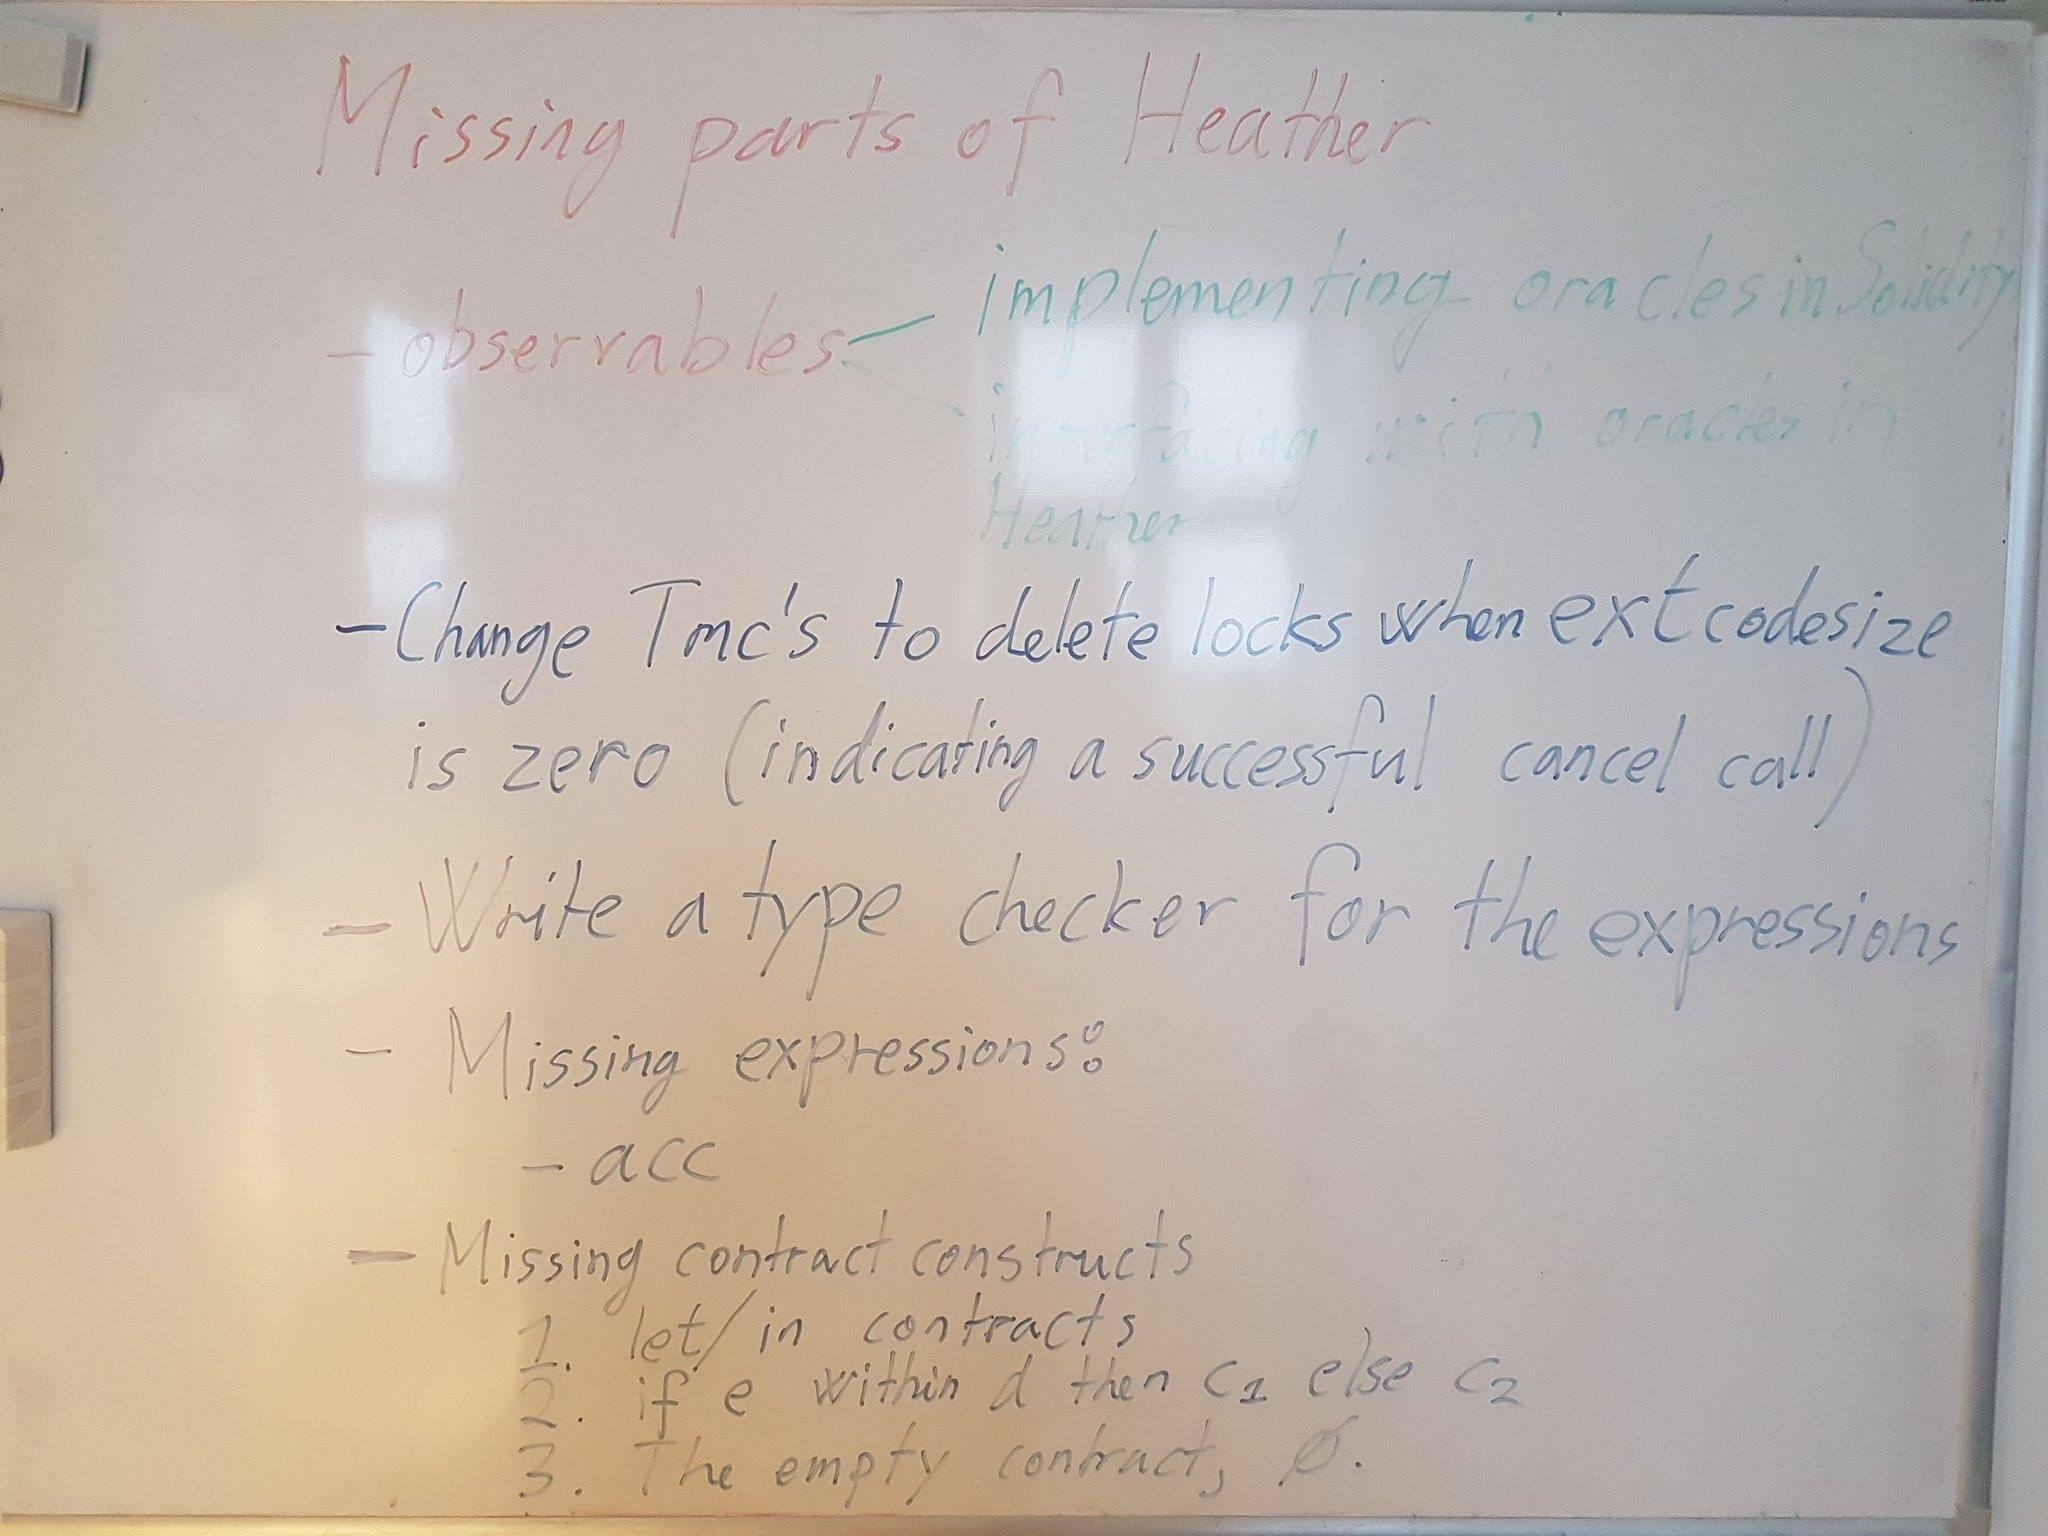 Missing parts of Heather
- observables
implementing oracles in Solidity
interfacing with oracles in
Heather
- Change Tmc's to delete locks when extcodesize
is zero (indicating a successful cancel call)
- Write a type checker for the expressions
- Missing expressions:
- acc
- Missing contract constructs
1. let/in contracts
2. if e within d then c1 else c2
3. The empty contract, Ø.